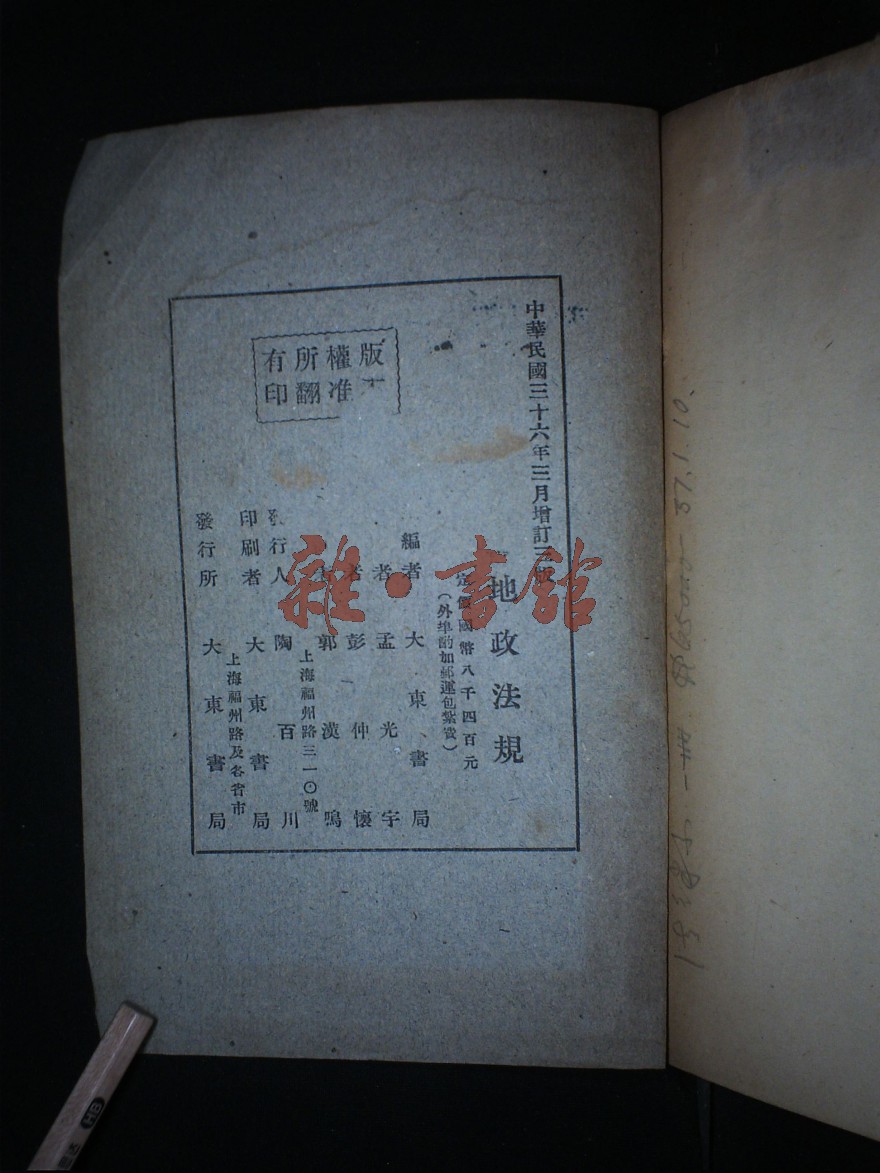 中華民國三十六年三月增訂三版
地政法規
定價國幣八千四百元
(外埠酌加郵運包紮費)
編者 大東書局
者 孟光宇
者 彭仲懷
郭漢鳴
發行人 陶百川
上海福州路三一〇號
印刷者 大東書局
發行所 大東書局
上海福州路及各省市
版權所有
准翻印
雜·書館
HB